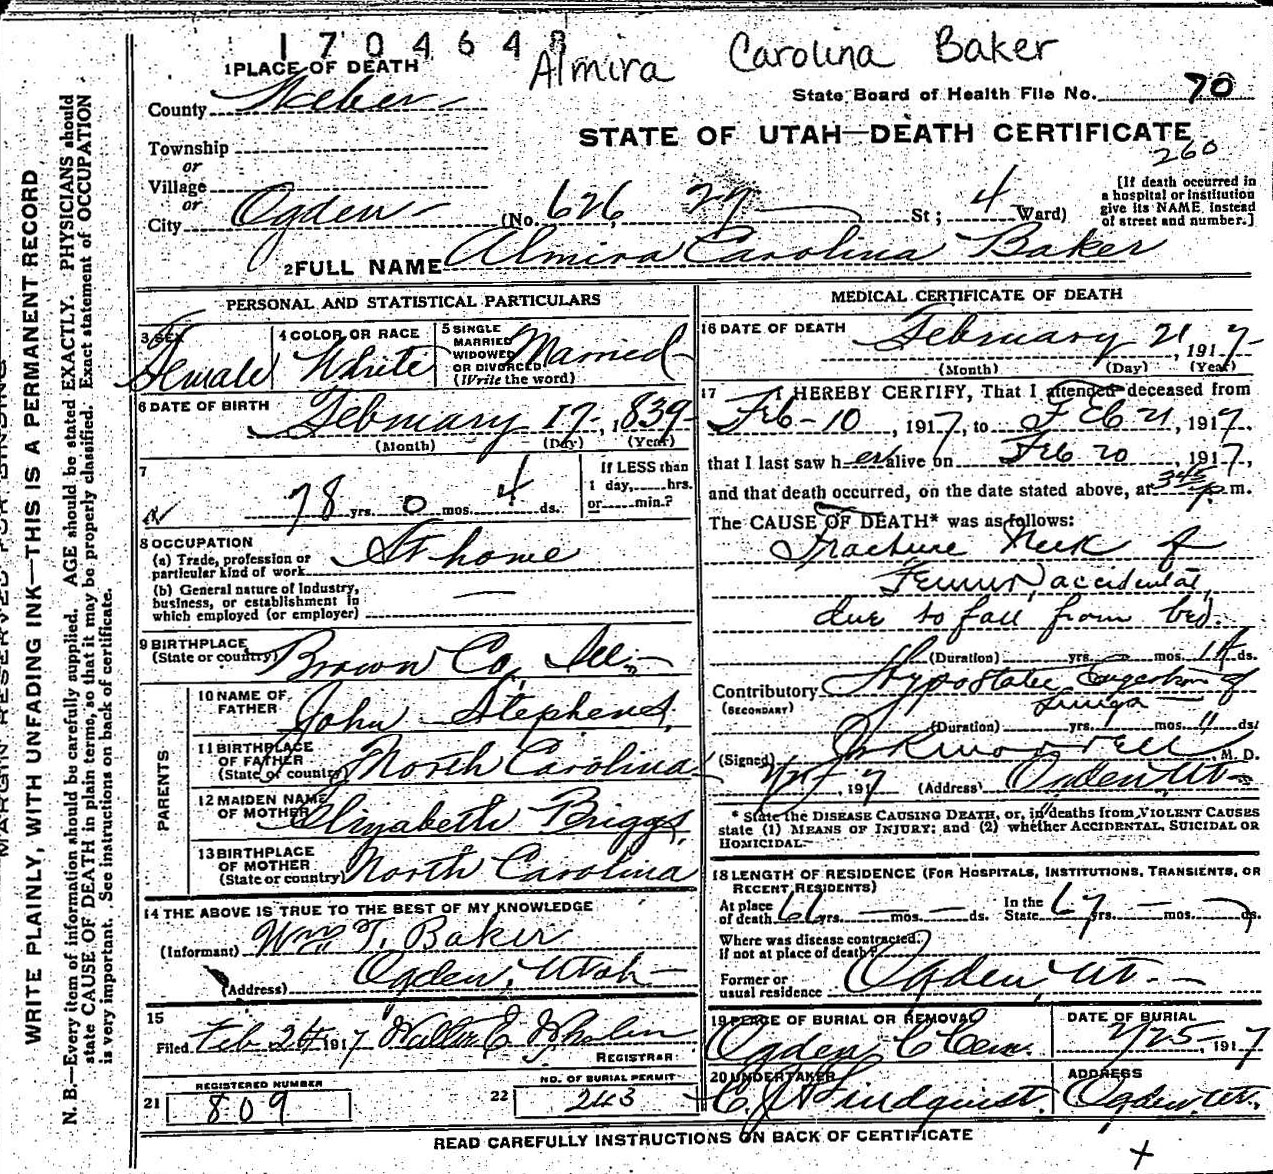 1704648
Almira Carolina Baker
1 PLACE OF DEATH
County Weber
State Board of Health File No. 70
STATE OF UTAH—DEATH CERTIFICATE
260
Township
or
Village
or
City Ogden (No. 626 27 St; 4 Ward)
[If death occurred in a hospital or institution give its NAME instead of street and number.]
2 FULL NAME Almira Carolina Baker
PERSONAL AND STATISTICAL PARTICULARS
3 SEX Female
4 COLOR OR RACE White
5 SINGLE MARRIED WIDOWED OR DIVORCED (Write the word) Married
6 DATE OF BIRTH February 17, 1839
(Month) (Day) (Year)
7 78 yrs. 0 mos. 4 ds.
If LESS than 1 day, hrs. or min.?
8 OCCUPATION
(a) Trade, profession or particular kind of work At home
(b) General nature of Industry, business, or establishment in which employed (or employer) —
9 BIRTHPLACE (State or country) Brown Co, Ill.
PARENTS
10 NAME OF FATHER John Stephens
11 BIRTHPLACE OF FATHER (State or country) North Carolina
12 MAIDEN NAME OF MOTHER Elizabeth Briggs
13 BIRTHPLACE OF MOTHER (State or country) North Carolina
14 THE ABOVE IS TRUE TO THE BEST OF MY KNOWLEDGE
(Informant) Wm T. Baker
(Address) Ogden, Utah
15 Filed Feb 24 1917 Walter E.
REGISTRAR
REGISTERED NUMBER
21 809
NO. OF BURIAL PERMIT
22 243
MEDICAL CERTIFICATE OF DEATH
16 DATE OF DEATH February 21, 1917
(Month) (Day) (Year)
17 I HEREBY CERTIFY, That I attended deceased from
Feb-10, 1917, to Feb 21, 1917,
that I last saw her alive on Feb 20, 1917,
and that death occurred, on the date stated above, at 345 p. m.
The CAUSE OF DEATH* was as follows:
Fracture Neck of
Femur, accidental,
due to fall from bed.
(Duration) yrs. mos. 14 ds.
Contributory Hypostatic Congestion of
(SECONDARY) Lungs
(Duration) yrs. mos. 11 ds.
(Signed) M. D.
1917 (Address) Ogden Ut
* State the DISEASE CAUSING DEATH, or, in deaths from VIOLENT CAUSES state (1) MEANS OF INJURY; and (2) whether ACCIDENTAL, SUICIDAL OR HOMICIDAL.
18 LENGTH OF RESIDENCE (FOR HOSPITALS, INSTITUTIONS, TRANSIENTS, OR RECENT RESIDENTS)
At place of death 61 yrs. — mos. — ds. In the State 67 yrs. — mos. ds.
Where was disease contracted, if not at place of death?
Former or usual residence Ogden, Ut.
19 PLACE OF BURIAL OR REMOVAL Ogden C Cem.
DATE OF BURIAL 2/25, 1917
20 UNDERTAKER C. J. A. Lindquist.
ADDRESS Ogden, Ut.
READ CAREFULLY INSTRUCTIONS ON BACK OF CERTIFICATE
MARGIN RESERVED FOR BINDING
WRITE PLAINLY, WITH UNFADING INK—THIS IS A PERMANENT RECORD
N. B.—Every item of information should be carefully supplied. AGE should be stated EXACTLY. PHYSICIANS should
state CAUSE OF DEATH in plain terms, so that it may be properly classified. Exact statement of OCCUPATION
is very important. See instructions on back of certificate.